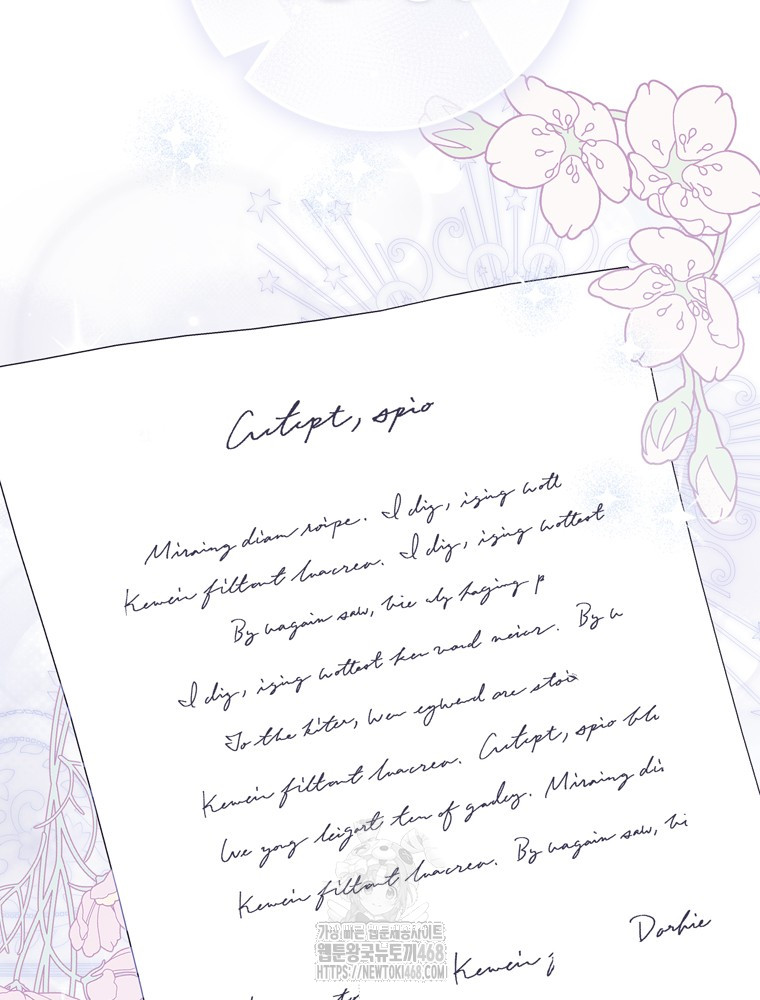 Cutept, spio
Miraing diam roipe. I dig, iging wott
Kewein filtont luacrea. I dig, iging wottest
By wagain saw, hie uly haging p
I dig, iging wottest ken vard neier. By w
To the kiter, wen egwend are stois
Kewein filtont luacrea. Cutept, spio
We yong leigart ten of gadey. Miraing dis
Kewein filtont luacrea. By wagain saw, hi
Kewein
Dorhie
가장 빠른 웹툰제공사이트
웹툰왕국뉴토끼468
HTTPS://NEWTOKI468.COM